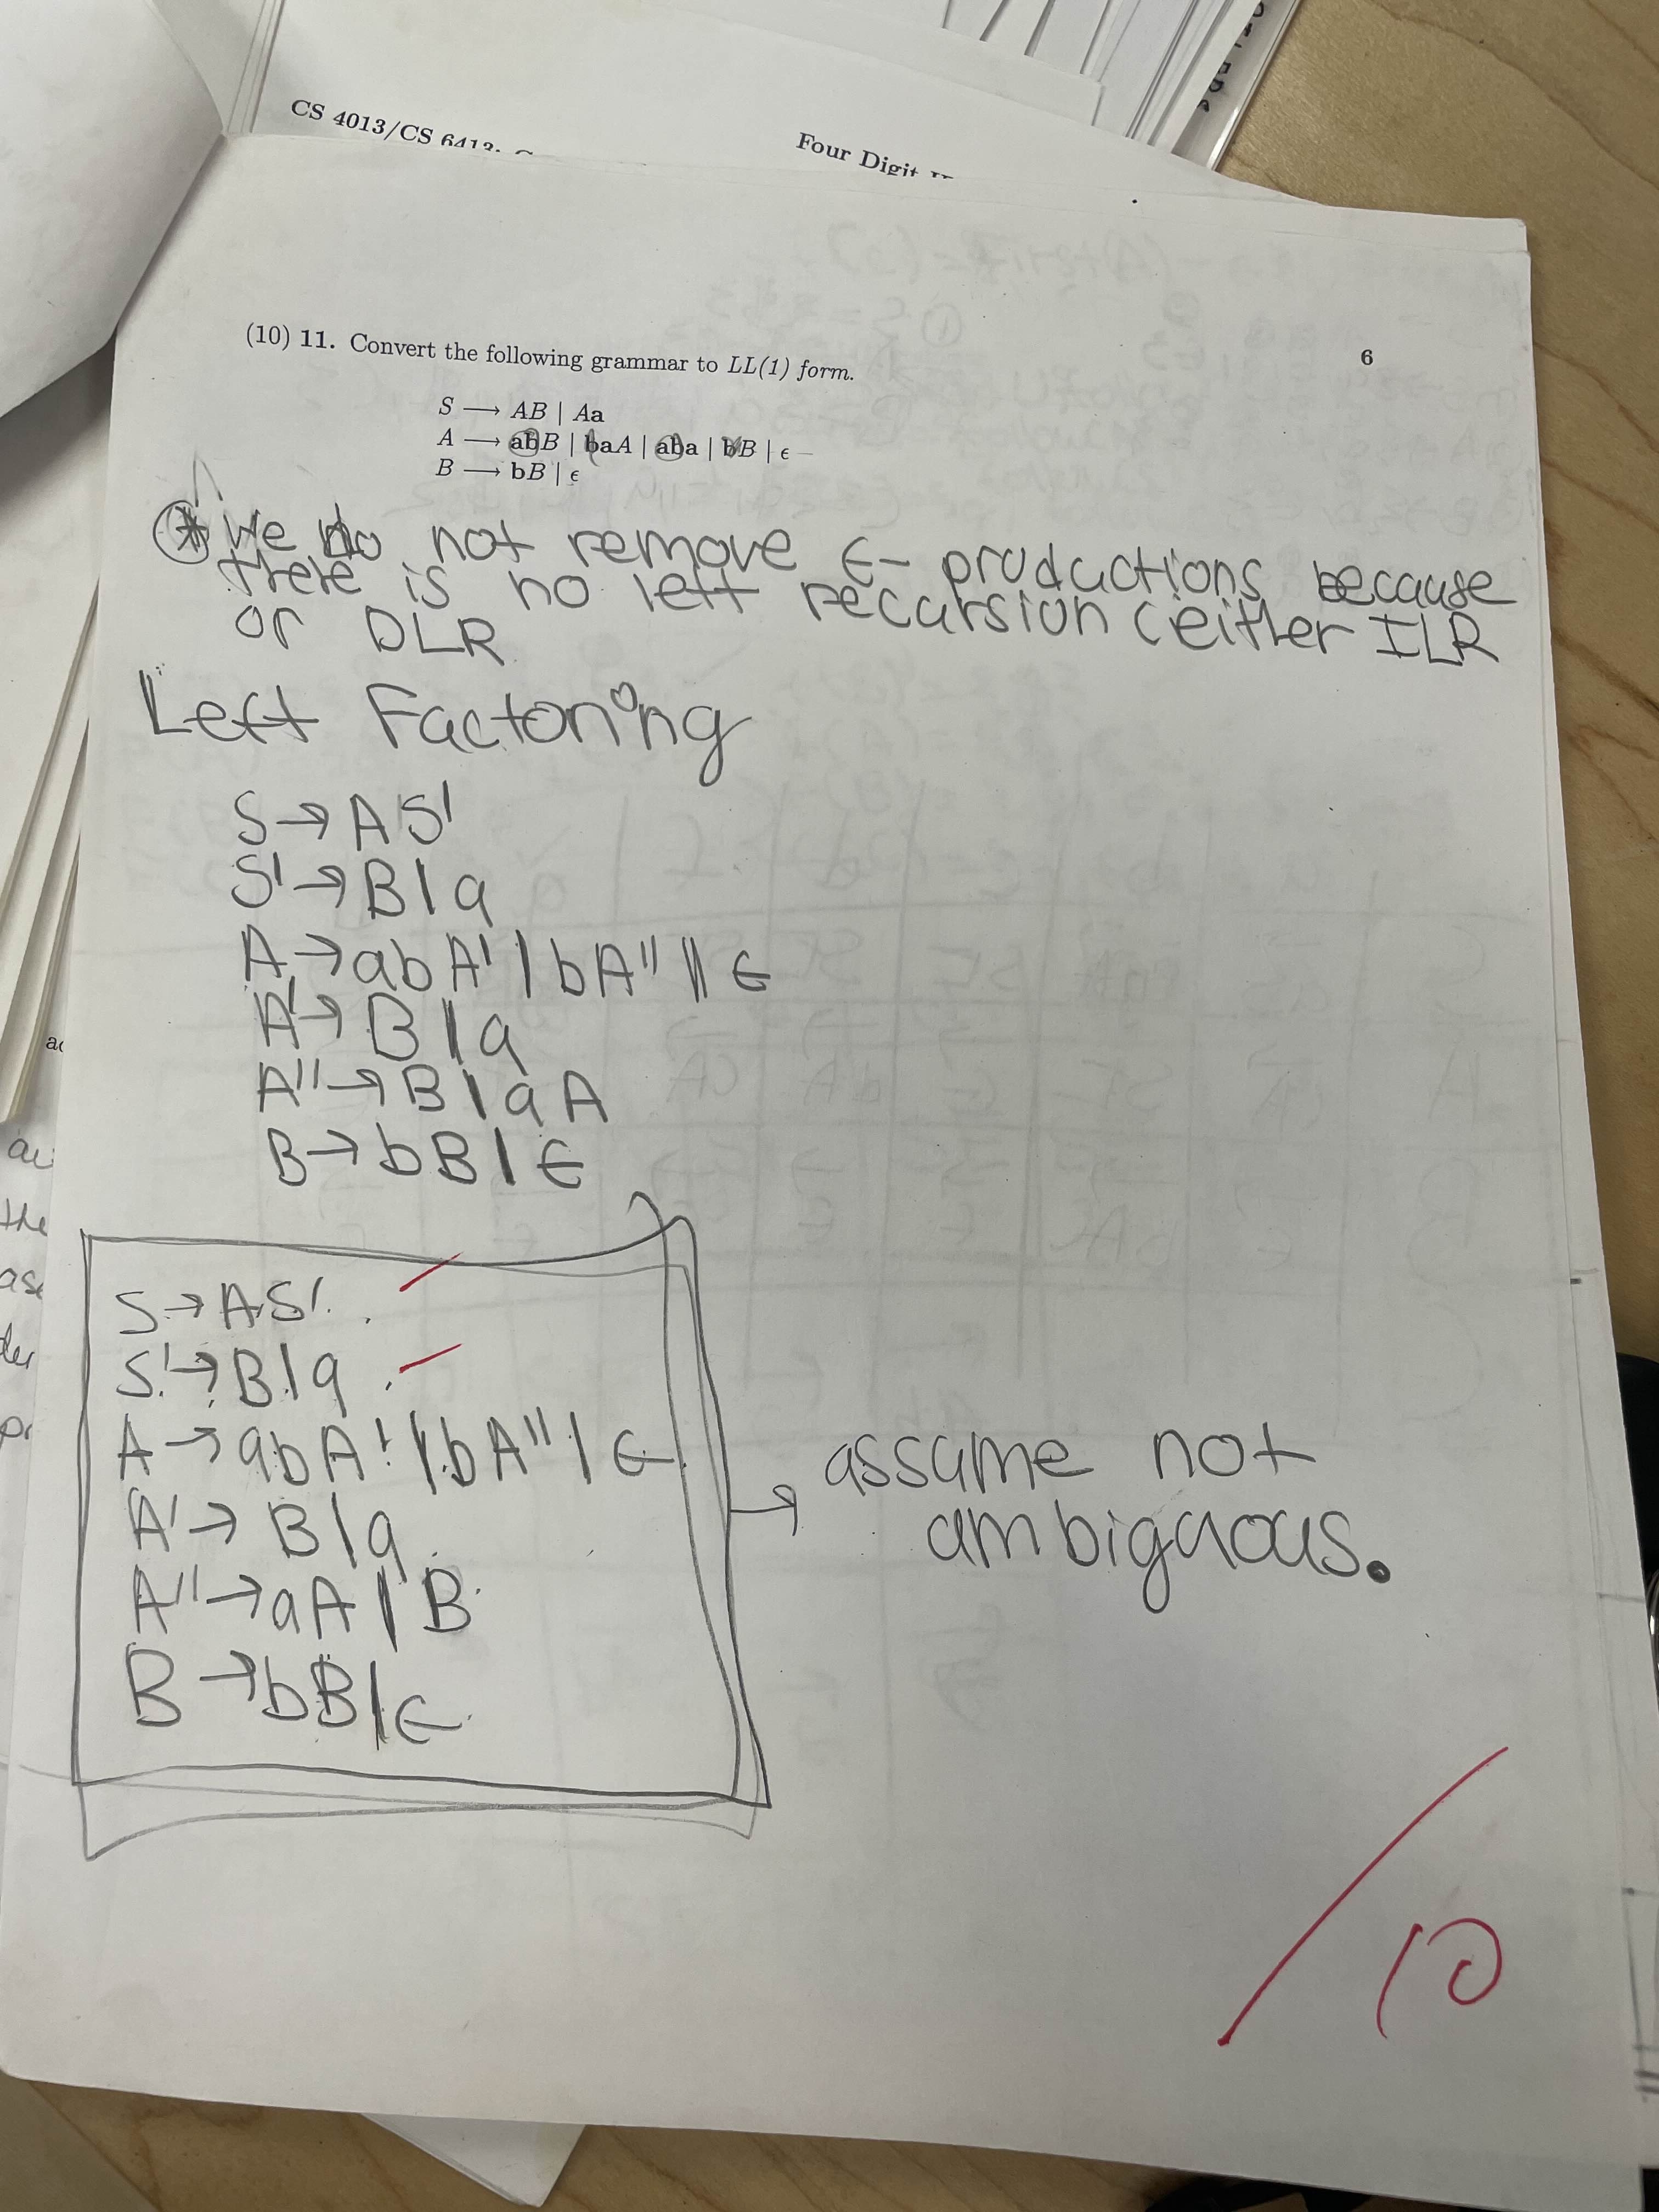 CS 4013/CS 6413:
Four Digit
6
(10) 11. Convert the following grammar to LL(1) form.
S ⟶ AB | Aa
A ⟶ abB | baA | aba | bB | ϵ
B ⟶ bB | ϵ
* We do not remove ϵ- productions because
there is no left recursion (either ILR
or DLR
Left Factoring
S → A S'
S' → B | a
A → abA' | bA'' || ϵ
A' → B | a
A'' → B | aA
B → bB | ϵ
S → AS'
S' → B | a
A → abA' | bA'' | ϵ
A' → B | a
A'' → aA | B
B → bB | ϵ
→ assume not
ambiguous.
/10